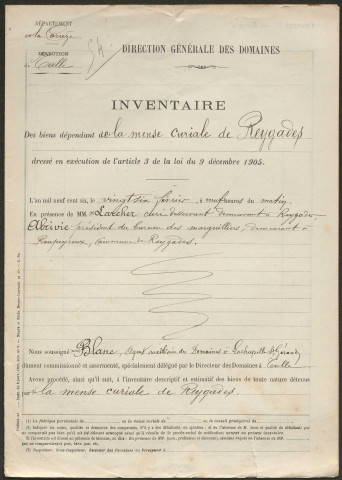 DÉPARTEMENT
de la Corrèze
DIRECTION
de Tulle
54
DIRECTION GÉNÉRALE DES DOMAINES
INVENTAIRE
Des biens dépendant de la mense curiale de Reygades
dressé en exécution de l'article 3 de la loi du 9 décembre 1905.
L'an mil neuf cent six, le vingt six février, à neuf heures du matin
En présence de MM. Larcher curé desservant demeurant à Reygades
président du bureau des marguilliers, demeurant à
commune de Reygades.
Nous soussigné Blanc, agent auxiliaire des Domaines à Lachapelle St Géraud
dûment commissionné et assermenté, spécialement délégué par le Directeur des Domaines à Tulle
Avons procédé, ainsi qu'il suit, à l'inventaire descriptif et estimatif des biens de toute nature détenus
la mense curiale de Reygades.
(1) La fabrique paroissiale de la mense curiale de le conseil presbytéral de